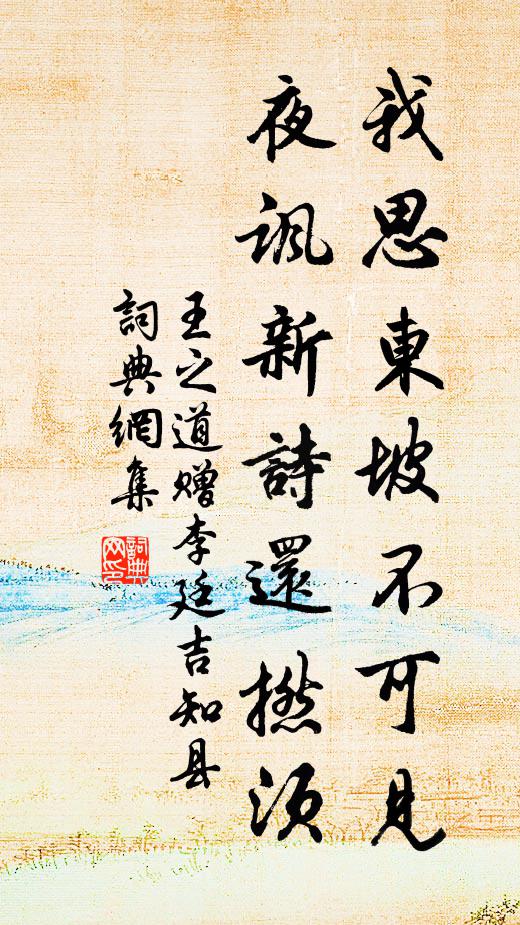 我思東坡不可見
夜諷新詩還撚須
王之道赠李廷吉知县
詞典網集
詞典
网印